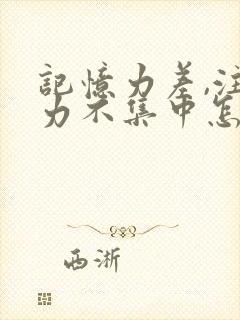 記憶力差,注
力不集中怎
西浙